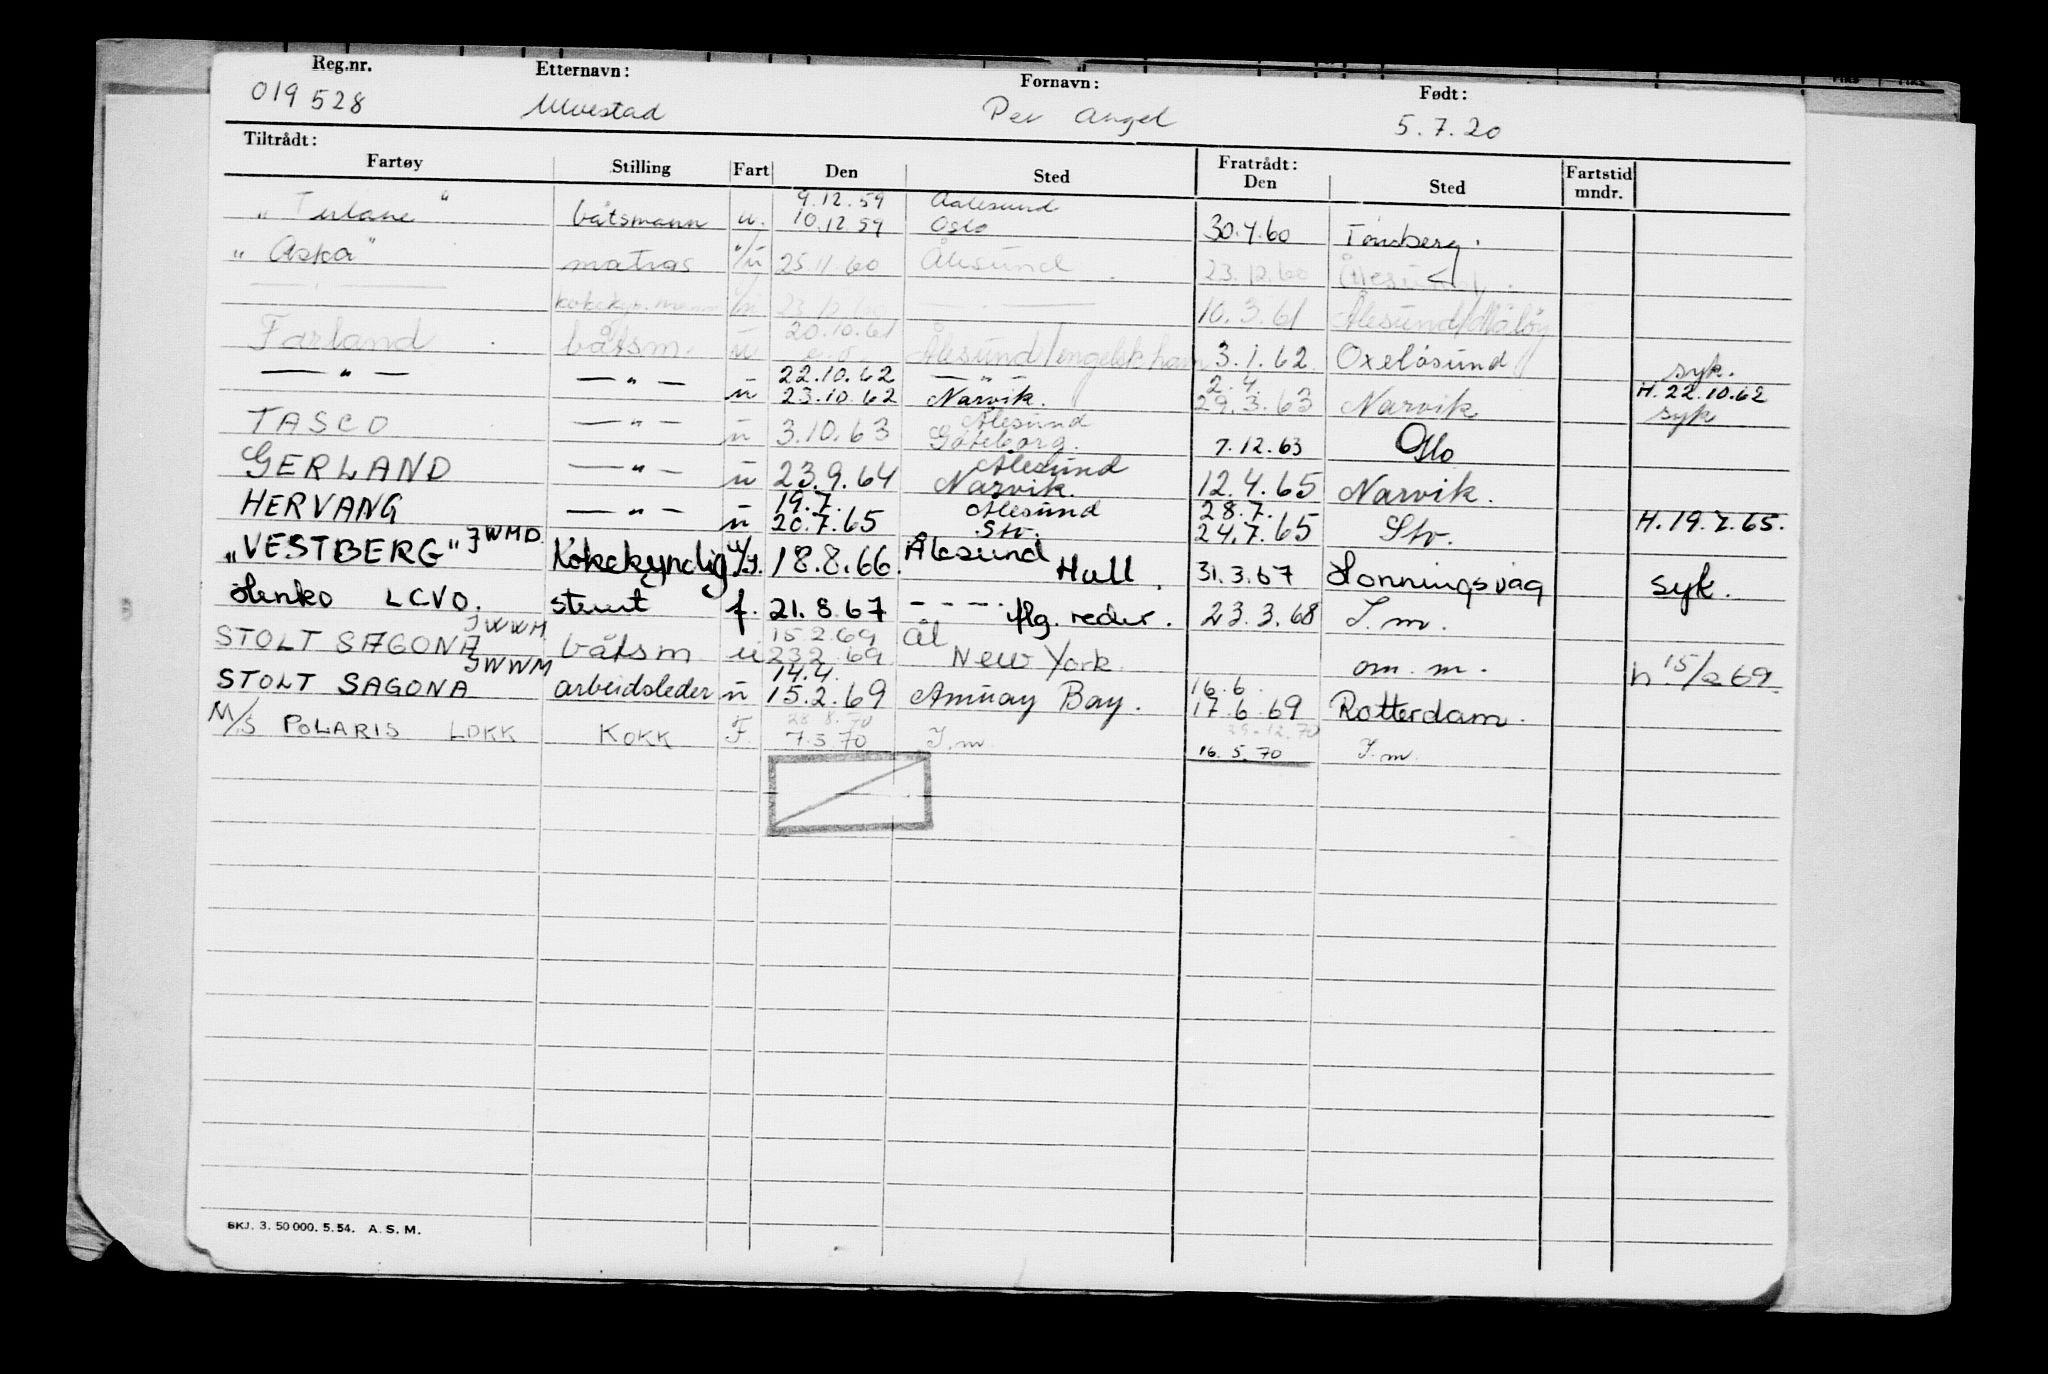 Reg.nr. Etternavn: Fornavn: Født:
019528 Ulvestad Per Angel 5.7.20
Tiltrådt: Fratrådt:
Fartøy Stilling Fart Den Sted Den Sted Fartstid mndr.
9.12.59 Aalesund
" " båtsmann u. 10.12.59 Oslo 30.4.60 Tønsberg.
"Aska" matros 25.11.60 Ålesund 23.12.60 Ålesund.
10.3.61 Ålesund/Måløy
20.10.61
Farland båtsm. u Ålesund/engelsk havn 3.1.62 Oxeløsund syk.
— " — — " — 22.10.62 — " — 2.4. H. 22.10.62
u 23.10.62 Narvik. 29.3.63 Narvik syk
Ålesund
TASCO — " — u 3.10.63 Gøteborg. 7.12.63 Oslo
Ålesund
GERLAND — " — u 23.9.64 Narvik. 12.4.65 Narvik.
19.7. Ålesund 28.7.
HERVANG — " — u 20.7.65 Stv. 24.7.65 Stv. H. 19.7.65.
"VESTBERG" JWMD Kokekyndig 18.8.66. Ålesund Hull. 31.3.67 Honningsvåg syk.
Henko LCVO. stuert f. 21.8.67 - - - - flg. reder. 23.3.68 I.m.
JWWM 15.2.69 Ål
STOLT SAGONA båtsm u 23.2.69 New York. om.m. h 15/2 69.
JWWM 14.4. 16.6.
STOLT SAGONA arbeidsleder u 15.2.69 Amuay Bay. 17.6.69 Rotterdam.
28.8.70 29.12.70
M/S POLARIS LDKK KOKK F. 7.5.70 I.m 16.5.70 I.m.
SKJ. 3. 50 000. 5.54. A. S. M.